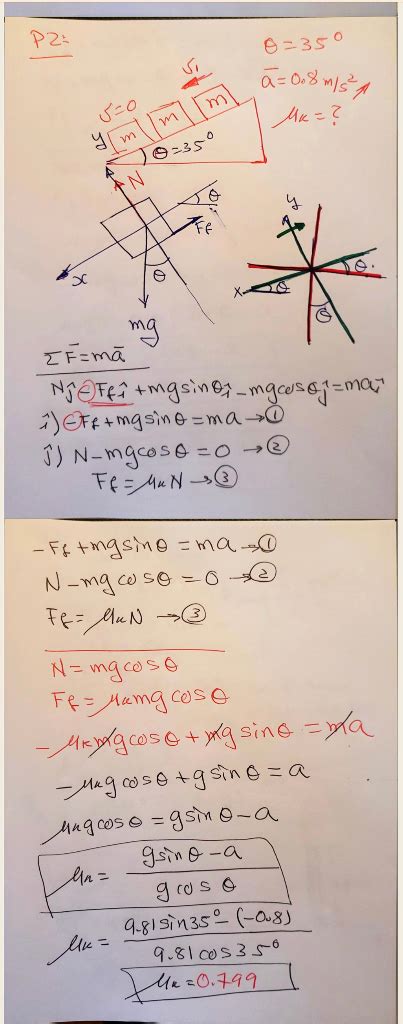 P2:
θ = 35°
a̅ = 0.8 m/s²
μk = ?
v1
v=0
m m m
y
θ=35°
N
θ
Ff
x
θ
mg
y
x
θ
θ
θ
ΣF̅ = ma̅
Nĵ - Ff î + mg sinθ î - mg cosθ ĵ = ma î
î) - Ff + mg sinθ = ma → ①
ĵ) N - mg cosθ = 0 → ②
Ff = μkN → ③
- Ff + mg sinθ = ma → ①
N - mg cosθ = 0 → ②
Ff = μkN → ③
N = mg cosθ
Ff = μk mg cosθ
- μk mg cosθ + mg sinθ = ma
- μk g cosθ + g sinθ = a
μk g cosθ = g sinθ - a
μk = g sinθ - a / g cosθ
μk = 9.81 sin35° - (-0.8) / 9.81 cos35°
μk = 0.799